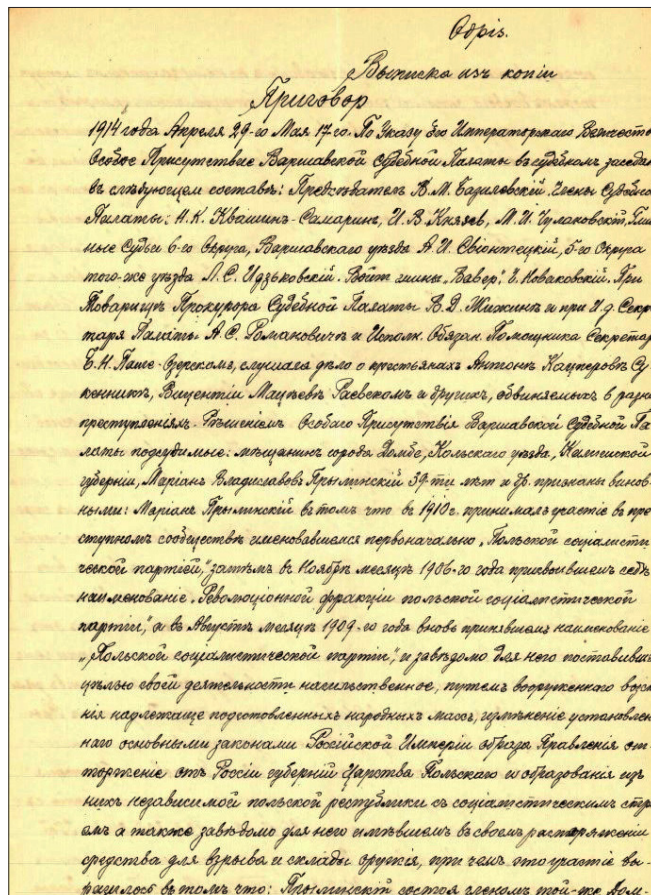 Одріз.
Выписка изъ копіи
Приговор
1914 года Апреля 29-го Мая 17-го. По Указу Его Императорскаго Величество
Особое Присутствие Варшавской Судебной Палаты въ судебном заседан
въ слѣдующем составѣ: Председатель В. М. Базилевскій Члены Судебно
Палаты: Н. К. Квашин-Самарин, И. В. Князев, М. И. Чулаковскі, Гми
ные Судьи 6-го Округа, Варшавскаго уѣзда А. И. Свіонтецкій, 5-го Округа
того-же уѣзда Л. С. Идзьковскій. Войт гмины "Вавер", Новаковскій. При
Товарищѣ Прокурора Судебной Палаты В. Д. Жижинѣ и при И. д. Секре
таря Палаты А. С. Романовичѣ и Исполн. Обязан. Помощника Секретар
Б. Н. Паше-Озерском, слушала дѣло о крестьянах Антонѣ Кацперовѣ Су
кенникѣ, Вицентіи Мацѣевѣ Раевском и других, обвиняемых в разн
преступленіях. Рѣшеніем Особаго Присутствія Варшавской Судебной Па
латы подсудимые: мѣщанинъ города Домбе, Кольскаго уѣзда, Калишской
губерніи, Маріанъ Владиславов Прылинскій 39-ти лѣт и др. признаны винов
ными: Маріанъ Прылинскій в том что в 1910 г. принималъ участіе в пре
ступном сообществѣ именовавшемся первоначально "Польской соціалисти
ческой партіей," затѣм в Ноябрѣ месяцѣ 1906-го года присвоившем себѣ
наименованіе "Революціонной фракціи польской соціалистической
партіи", а в Августѣ месяцѣ 1909-го года вновь принявшем наименованіе
"Польской соціалистической партіи," и завѣдомо для него поставивш
цѣлью своей деятельности насильственное, путем вооруженнаго возста
нія надлежаще подготовленных народных масс, измѣненіе установлен
наго основными законами Россійской Имперіи образа Правленія от
торженіе отъ Россіи губерній Царства Польскаго и образованія изъ
них независимой польской республики съ соціалистическим стро
ем а также завѣдомо для него имѣвшем въ своем распоряженіи
средства для взрыва и склады оружія, при чем это участіе вы-
разилось в том что: Прылинскій состоя членом той-же Бом-